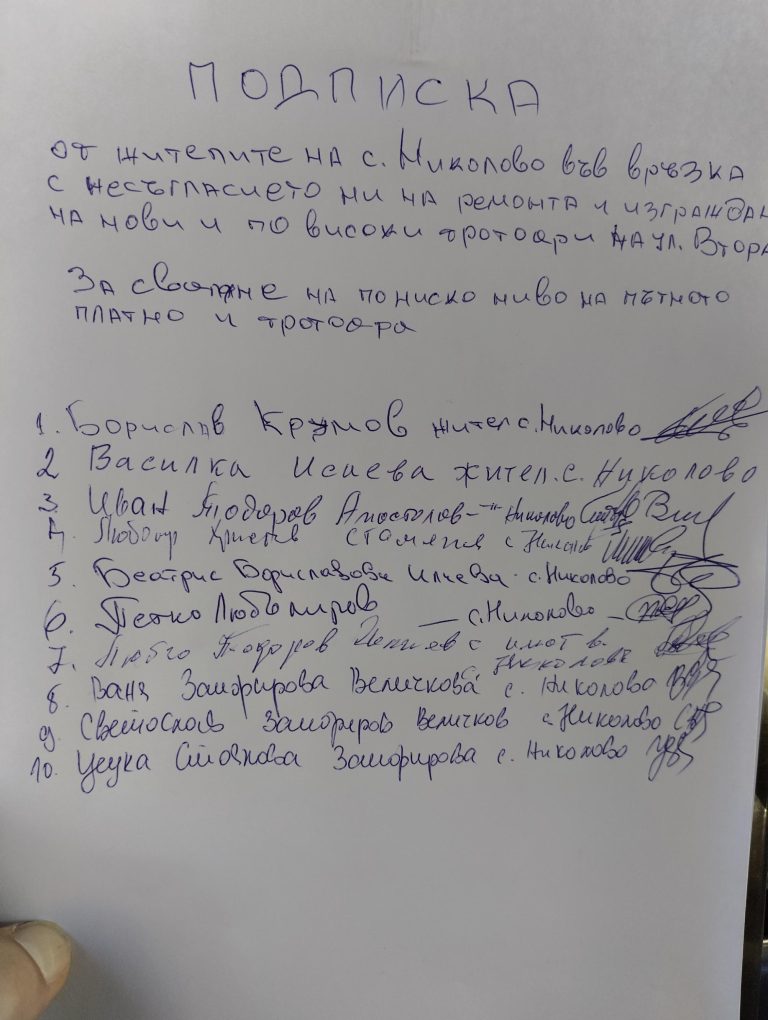 ПОДПИСКА
от жителите на с. Николово във връзка
с несъгласието ни на ремонта и изграждан
на нови и по високи тротоари на ул. Втора
За сваляне на по ниско ниво на пътното
платно и тротоара
1. Борислав Крумов жител с. Николово
2 Василка Исаева жител. с. Николово
3. Иван Тодоров Апостолов - " - Николово
4. Любомир Христов с
5. Беатрис Бориславова Илиева - с. Николово
6. Петко Любомиров — с. Николово -
7. Тодоров с имот в
с. Николово
8. Ваня Замфирова Величкова с. Николово
9. Светослав Замфиров Величков с. Николово
10. Цецка Стоянова Замфирова с. Николово